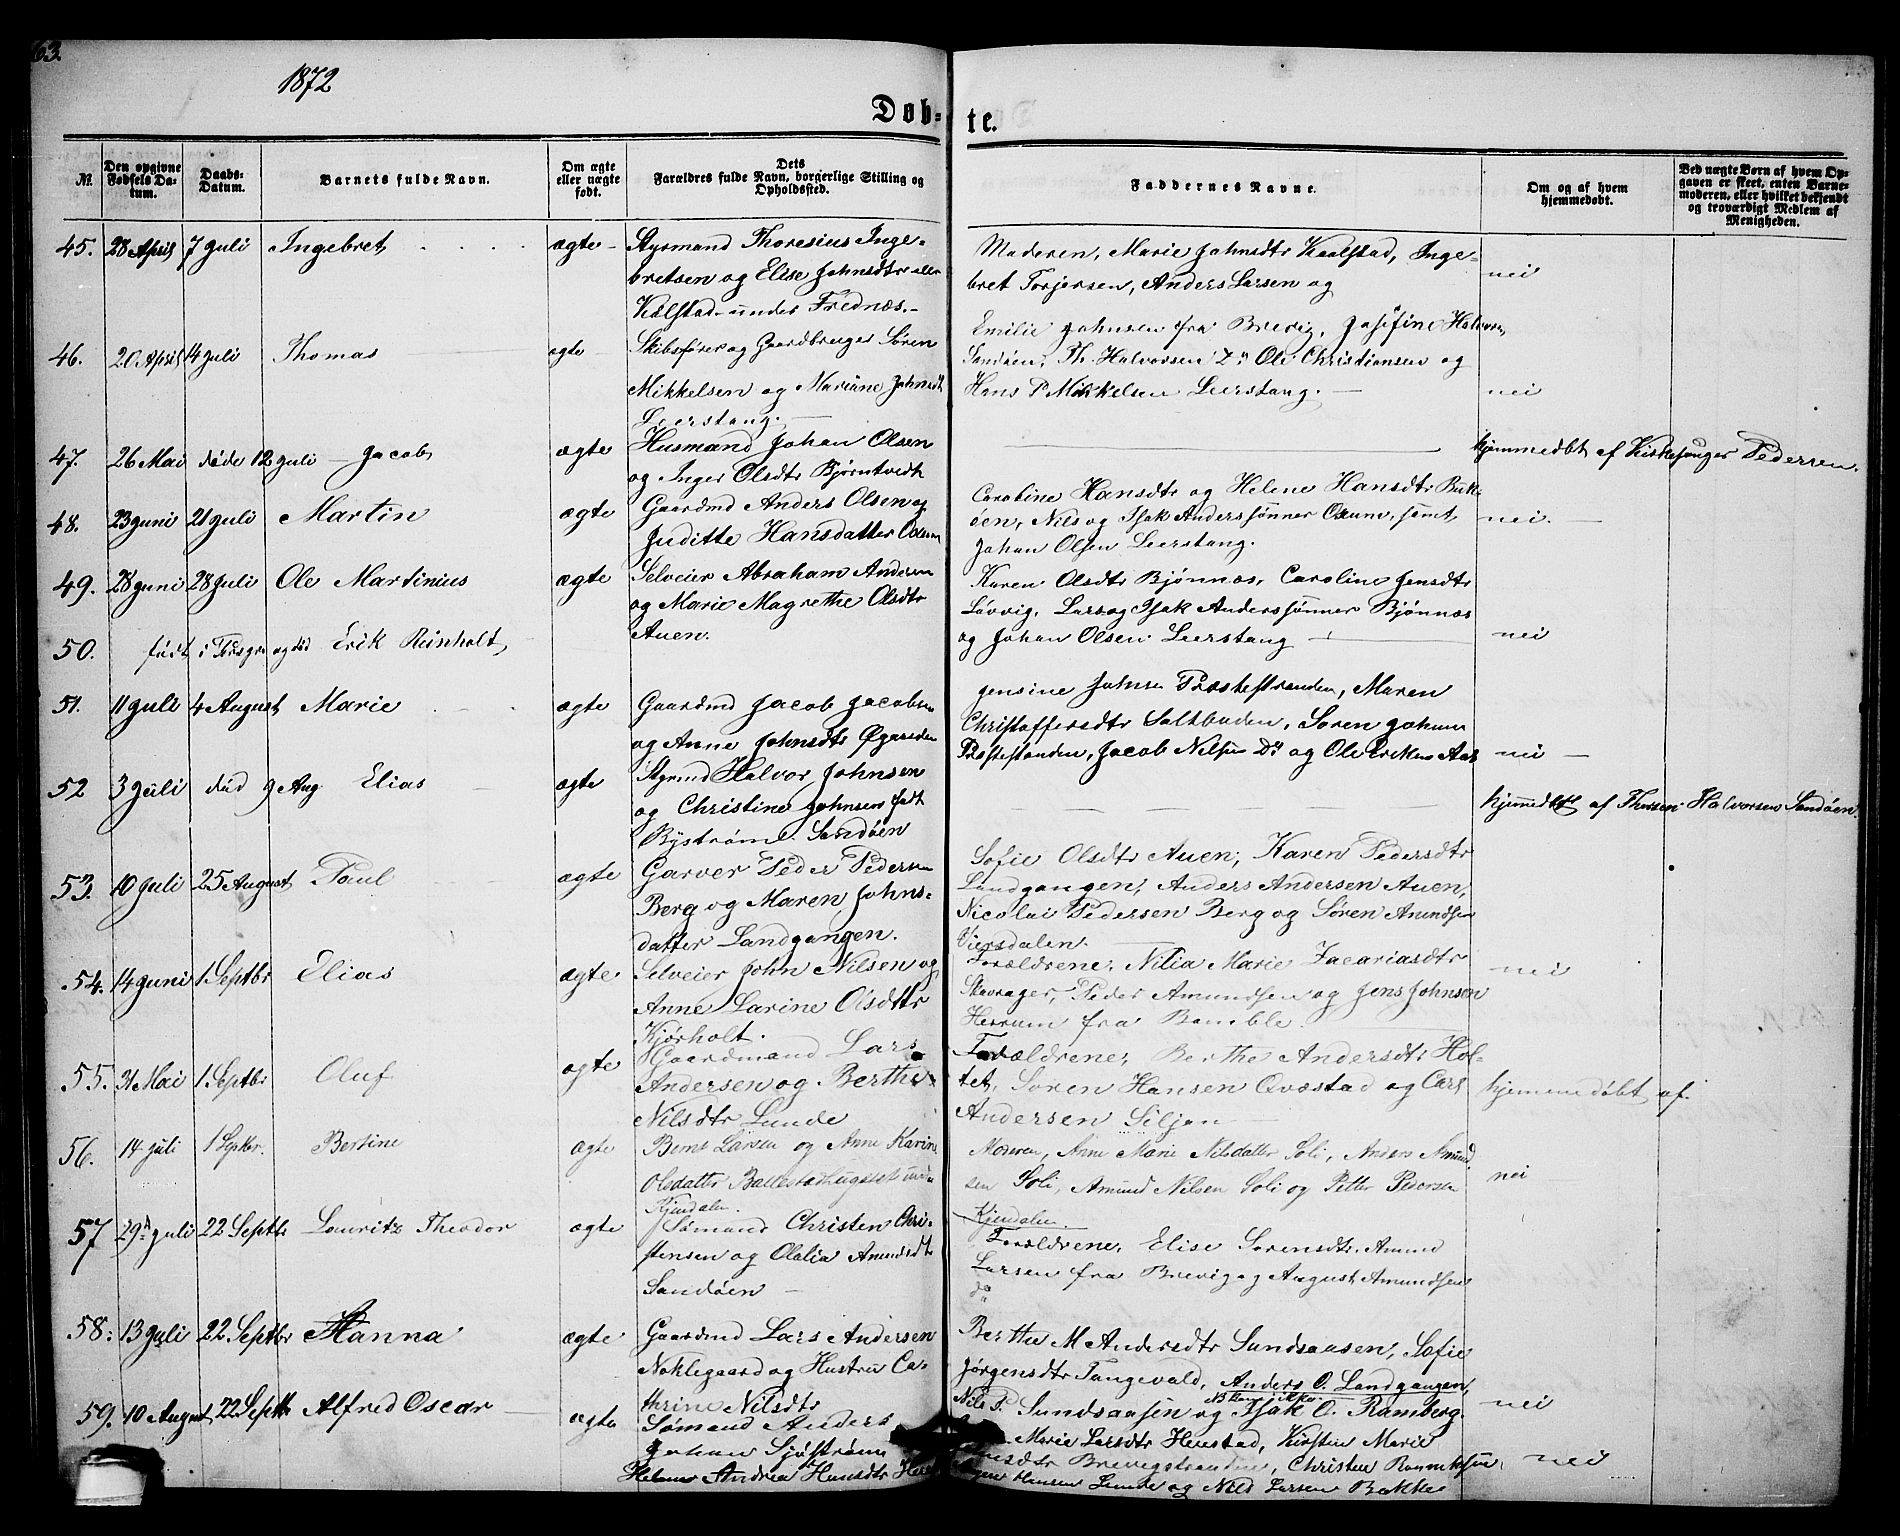 63.
1872
Døb-
te.
№
Den opgivne Fødsels Datum.
Daabs-Datum.
Barnets fulde Navn.
Om ægte eller uægte født.
Dets Forældres fulde Navn, borgerlige Stilling og Opholdsted.
Faddernes Navne.
Om og af hvem hjemmedøbt.
Ved uægte Børn af hvem Opgaven er skeet, enten Barnemoderen, eller hvilket bekjendt og troværdigt Medlem af Menigheden.
45. 28 April 7 Juli Ingebret ægte
Styrmand Thoresius Inge-
bretsen og Elise Johnsdtr
Kalstad under Frednæs.
Moderen, Marie Johnsdtr Kaalstad, Inge-
bret Torjersen, Anders Larsen og
Emilie Johnsen fra Brevig.
nei
46. 20 April 14 Juli Thomas ægte
Skibsfører og Gaardbruger Søren
Mikkelsen og Mariane Johnsdtr
Leerstang.
Josefine Halvors
Sandøen, Th. Halvorsen Do Ole Christiansen og
Hans P Mikkelsen Leerstang.
nei
47. 26 Mai døde 12 Juli Jacob ægte
Husmand Johan Olsen
og Inger Olsdtr Bjørntvedt
hjemmedbt af Kirkesanger Pedersen.
48. 23 Juni 21 Juli Martin ægte
Gaardmd Anders Olsen og
Juditte Hansdatter Oxum
Caroline Hansdtr og Helene Hansdtr Buk-
øen, Nils og Isak Anderssønner Oxum, samt
Johan Olsen Leerstang.
nei.
49. 28 Juni 28 Juli Ole Martinius ægte
Selveier Abraham Andersen
og Marie Magrethe Olsdtr
Auen.
Karen Olsdtr Bjønnæs, Caroline Jensdtr
Løvvig, Lars og Isak Anderssønner Bjønnæs
og Johan Olsen Leerstang
nei
50. født i Porsgr og død Erik Reinholt
51. 11 Juli 4 August Marie ægte
Gaardmd Jacob Jacobsen
og Anne Johnsdtr Øgarden
Jensine Johnsen Præstestranden, Maren
Christoffersdtr Saltboden, Søren Johnsen
Præstestranden, Jacob Nilsen Do og Ole Eriksen Aas
nei
52 3 Juli død 9 Aug Elias ægte
Styrmd Halvor Johnsen
og Christine Johnsen født
Bystrøm Sandøen
hjemmedbt af Halvorsen Sandøen.
53. 10 Juli 25 August Paul ægte
Garver Peder Pedersen
Berg og Maren Johns-
datter Landgangen.
Sofie Olsdtr Auen, Karen Pedersdtr
Landgangen, Anders Andersen Auen,
Nicolai Pedersen Berg og Søren Amundsen
Viersdalen.
54. 14 Juni 1 Septbr Elias ægte
Selveier John Nilsen og
Anne Larine Olsdttr
Kjørholt.
Forældrene, Nilia Marie Zacariasdtr
Stavrager, Peder Amundsen og Jens Johnsen
Herrum fra Bamble.
nei
55. 31 Mai 1. Septbr Oluf ægte
Gaardmand Lars
Andersen og Berthe
Nilsdtr Lunde
Forældrene, Berthe Andersdtr Hol-
tet, Søren Hansen Qvæstad og Carl
Andersen Siljan
hjemmedøbt af
56. 14 Juli 1 Septbr. Bertine ægte
Bernt Larsen og Anne Karine
Olsdatter Ballestadhugset und
Kjendalen.
Moderen, Anne Marie Nilsdatter Soli, Anders Amund-
sen Soli, Amund Nilsen Soli og Petter Pedersen
Kjendalen.
nei
57 29de Juli 22 Septbr Lauritz Theodor ægte
Sømand Christen Chri-
stensen og Olalia Amundsdtr
Sandøen
Forældrene, Elise Sørensdtr, Amund
Larsen fra Brevig og August Amundsen
do
58. 13 Juli 22 Septbr Hanna ægte
Gaardmd Lars Andersen
Noklegaard og Hustru Ca-
thrine Nilsdtr
Berthe M Andersdtr Sundsaasen, Sofie
Jørgensdtr Tangevald, Anders O. Landgangen,
Nils P. Sundsaasen og Isak O. Ramberg.
nei
59. 10 August 22 Septbr Alfred Oscar ægte
Sømand Anders
Johan Sjøstrøm
Helene Andrea Hansdtr
Marie Larsdtr Heistad, Kirstin Marie
Brevigstranden, Christen
Hansen Lunde og Nils Larsen Bakke
nei